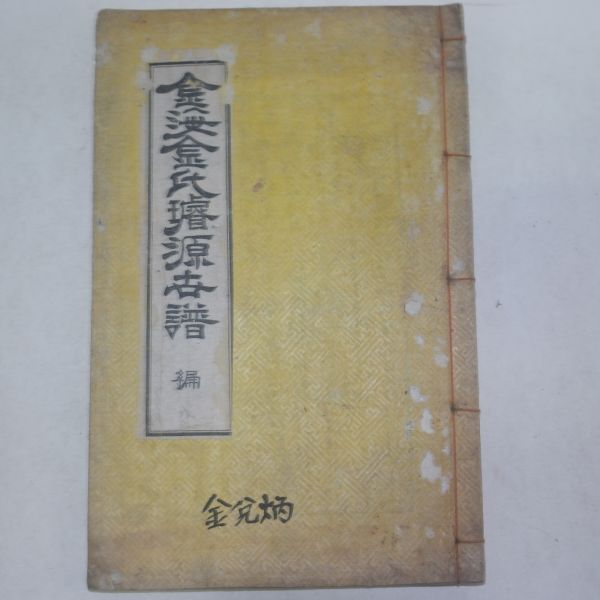 金海金氏璿源世譜
編
金兌炳